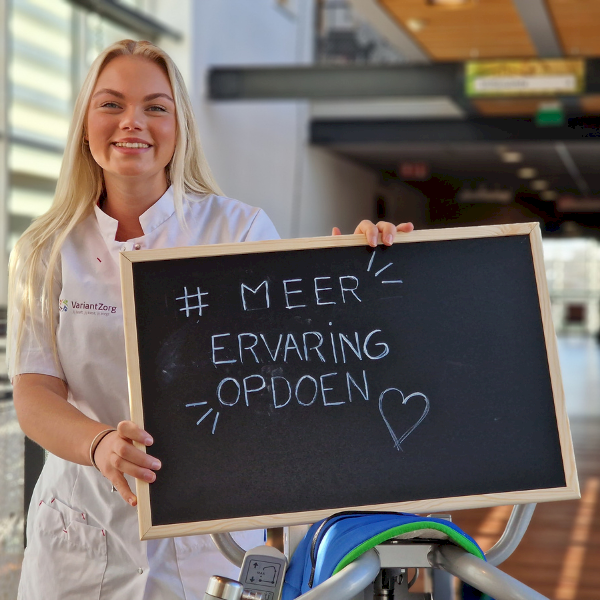 VariantZorg
# MEER
ERVARING
OPDOEN